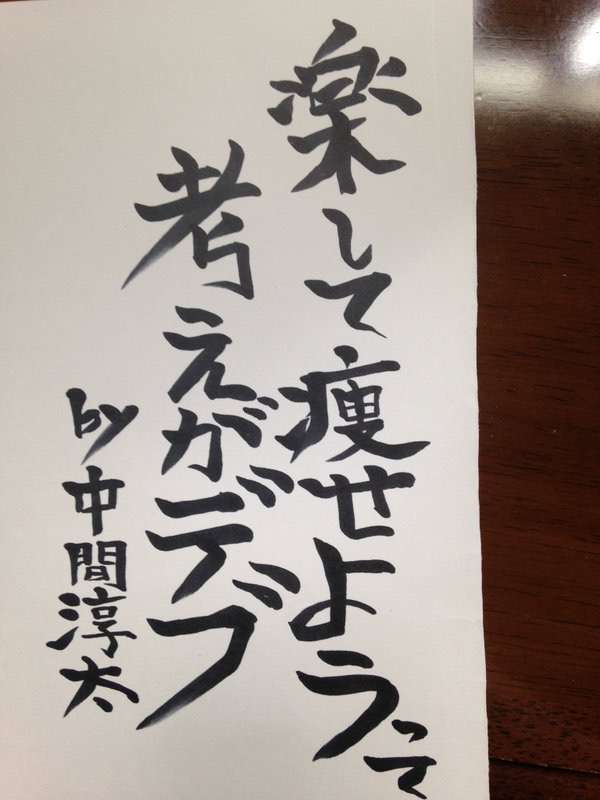 楽して痩せようって
考えがデブ
by 中間淳太